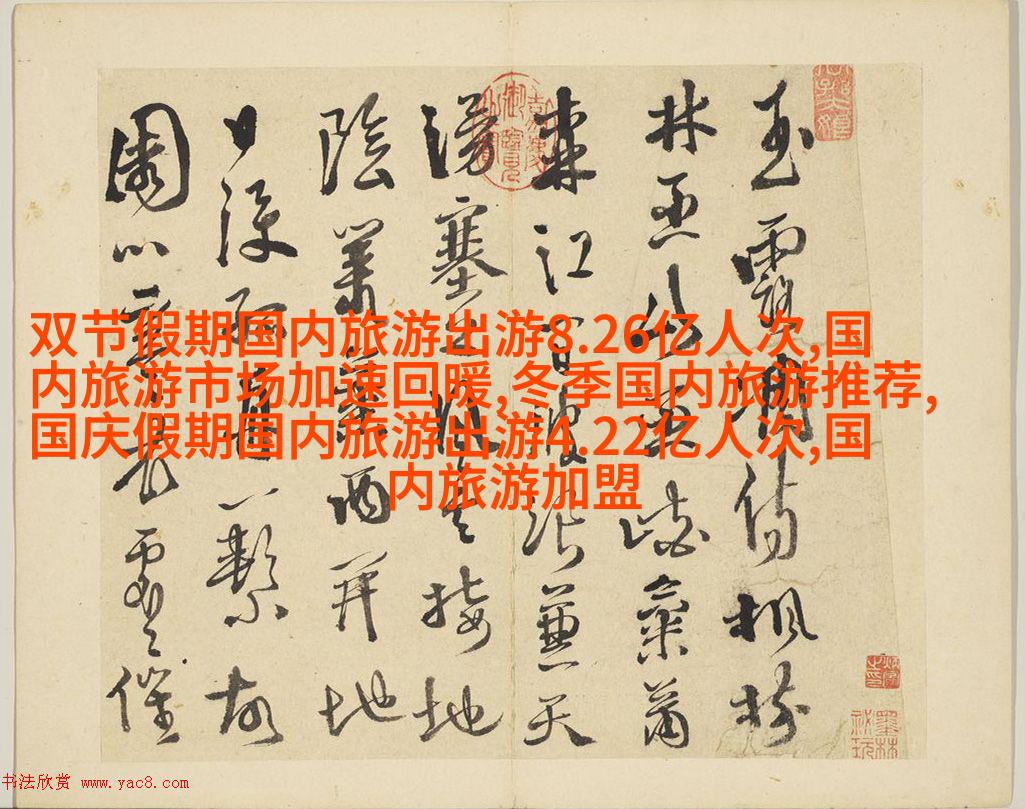 玉露凋傷楓樹
林巫山巫峽氣蕭
森江間波浪兼天
湧塞上風雲接地
陰叢菊兩開他
日淚孤舟一繫故
園心寒衣處處催
双节假期国内旅游出游8.26亿人次,国
内旅游市场加速回暖,冬季国内旅游推荐,
国庆假期国内旅游出游4.22亿人次,国
内旅游加盟
书法欣赏 www.yac8.com